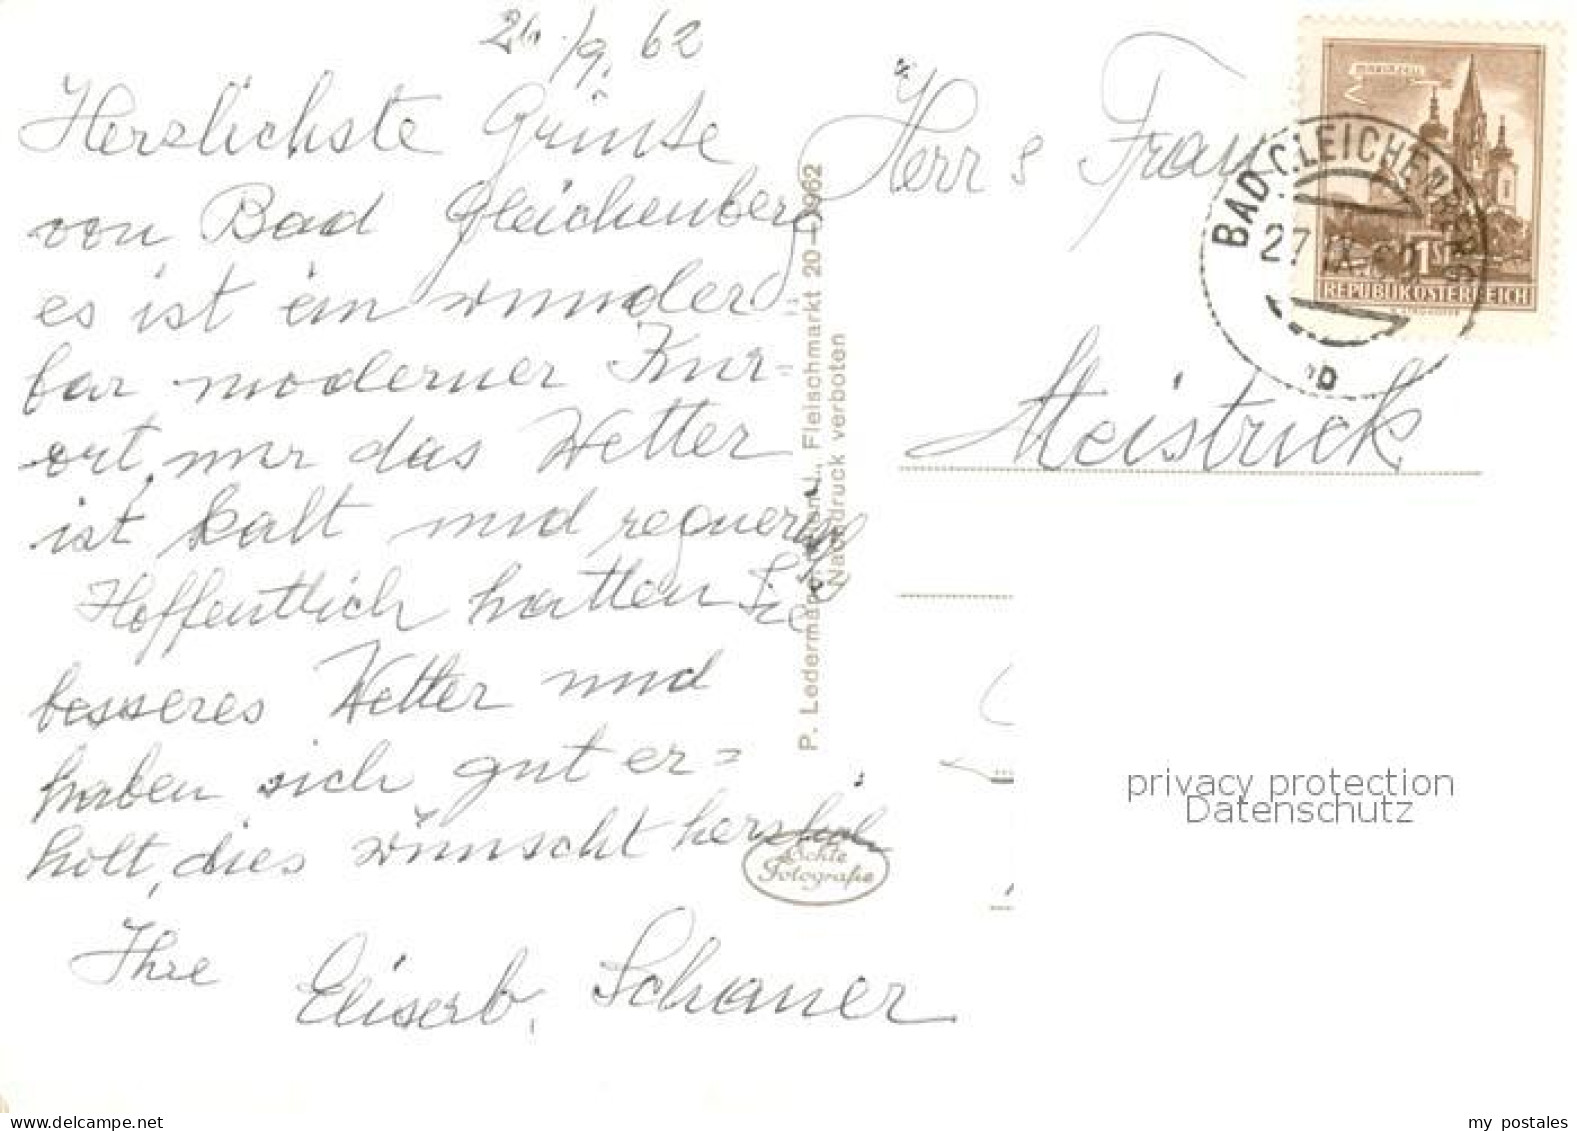 26./9. 62
Herzlichste Grüsse
von Bad Gleichenberg
es ist ein wunder
bar moderner Kur-
ort, nur das Wetter
ist kalt und regnerisch
Hoffentlich hatten Sie
besseres Wetter und
haben sich gut er=
holt, dies wünscht herzlich
Ihre
Schauer
P. Ledermann, Wien I., Fleischmarkt 20 – 1962
Nachdruck verboten
Echte
Fotografie
Herr & Frau
Meistrick
MARIAZELL
1 S
REPUBLIK ÖSTERREICH
BAD GLEICHENBERG
27.IX.62
b
privacy protection
Datenschutz
delcampe.net
my_postales